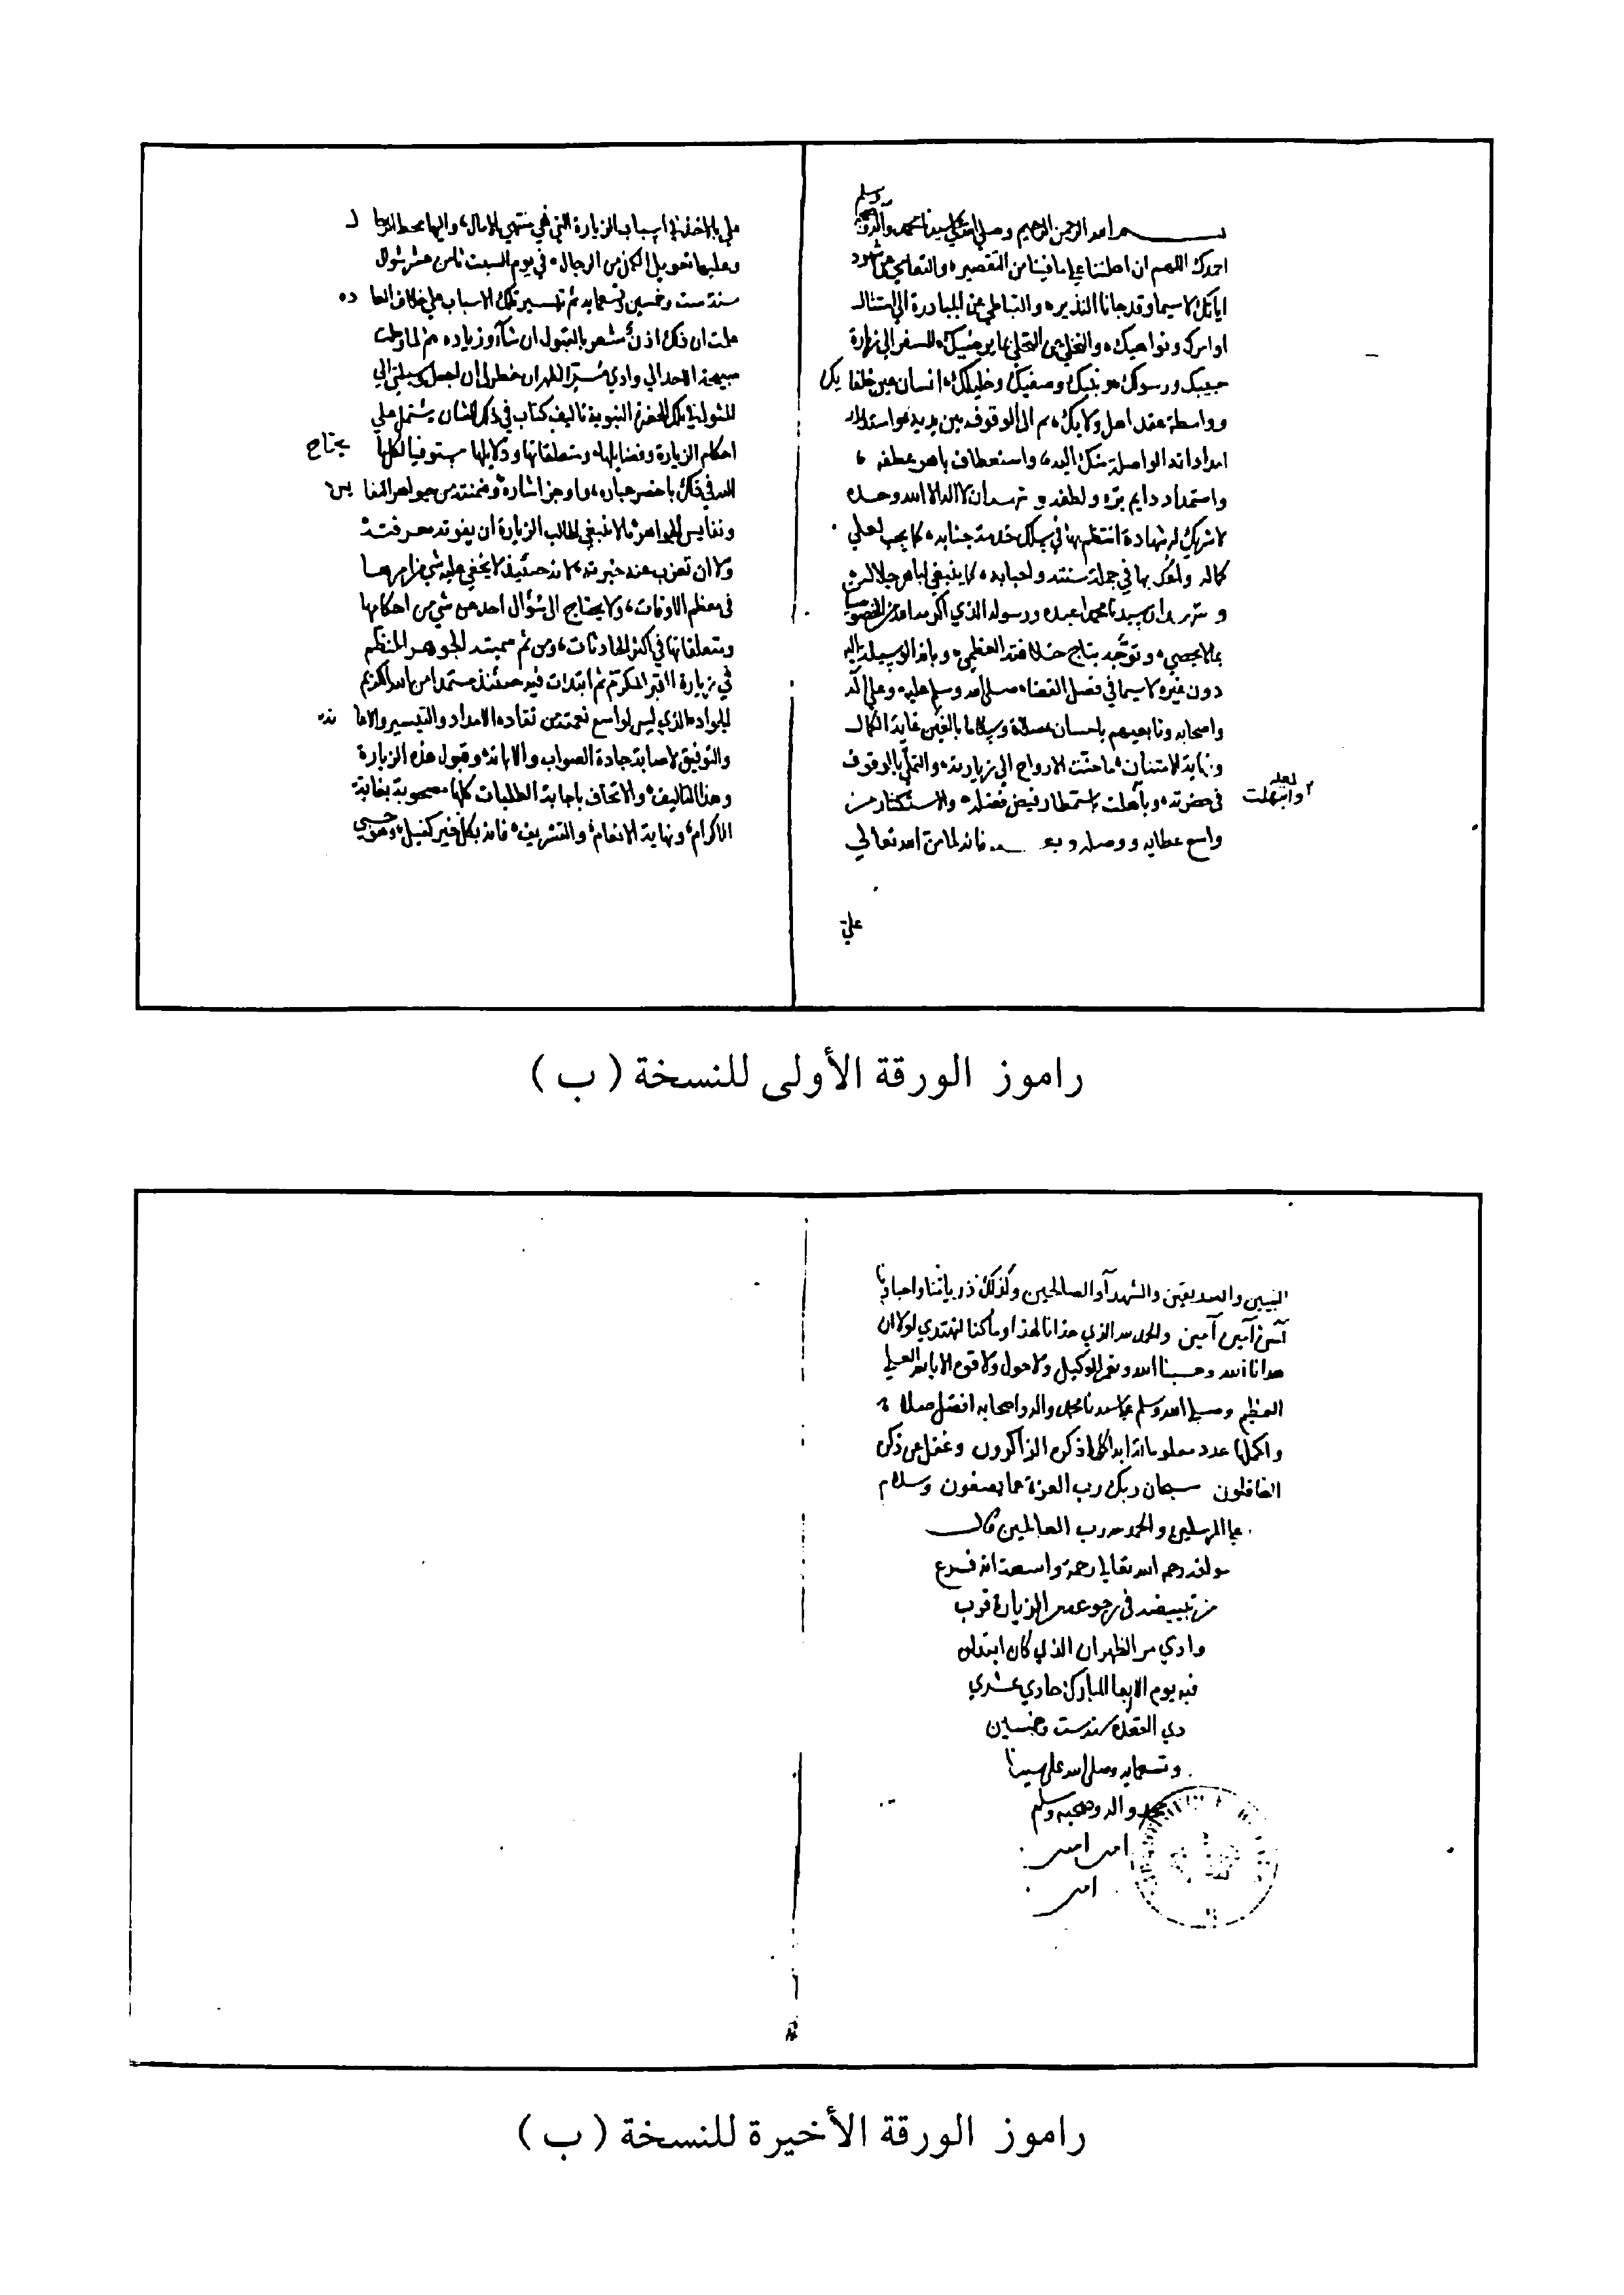 بسم الله الرحمن الرحيم وصلى الله على سيدنا محمد وآله وصحبه وسلم
احمدك اللهم ان اهلتنا على ما فينا من التقصير والتعامي عن شهود
اياتك لا سيما وقد جانا النذير والتباطي عن المبادرة الى امتثال
اوامرك ونواهيك والتخلي عن التحلي بما يرضيك للسفر الى زيارة
حبيبك ورسولك ونبيك وصفيك وخليلك انسان عين خلفايك
وواسطة عقد اهل ولايك ثم الى الوقوف بين يديه واستدرار
امداداته الواصلة منك اليه واستعطاف باهر عطفه
واستمداد دايم بره ولطفه و نشهد ان لا اله الا الله وحده
لا شريك له شهادة انتظم بها في سلك خدمة جنابه كما يجب لعلي
كماله واذكر بها في جملة سنته واحبابه كما ينبغي لباهر جلاله
و نشهد ان سيدنا محمدا عبده ورسوله الذي اكرمه الله من الخصوصيا
بما لا يحصى وتوجه بتاج خلافته العظمى وبانه الوسيلة اليه
دون غيره لا سيما في فصل القضا صلى الله وسلم عليه وعلى آله
واصحابه وتابعيهم باحسان صلاة وسلاما بالغين غاية الكمال
ونهاية الامتنان ما حنت الارواح الى زيارته والتملي بالوقوف
في حضرته وبأهلت باستمطار فيض فضله والاستكثار من
لعله وابتهلت
واسع عطايه ووصله وبعد فانه لما من الله تعالى
علي
علي بالاخذ في اسباب الزيارة التي هي منتهى الامال واليها محط الرحال
وعليها تعويل الكمل من الرجال في يوم السبت ثامن عشر شوال
سنة ست وخمسين وتسعمايه ثم تيسير تلك الاسباب على خلاف العاده
علمت ان ذلك اذن مشعر بالقبول ان شآء وزياده ثم لما وصلت
صبيحة الاحد الى وادي مر الظهران خطر لي ان اجعل وسيلتي الى
المثول في تلك الحضرة النبوية تاليف كتاب في ذلك الشان يشتمل على
احكام الزيارة وفضايلها ومتعلقاتها ودلايلها مستوفيا لكلما يحتاج
اليه في ذلك باخصر عباره واوجز اشارة وضمنته من جواهر النفايس
ونفايس الجواهر ما لا ينبغي لطالب الزيارة ان يفوته معرفته
ولا ان تعزب عنه خبرته لانه حينئذ لا يخفى عليه شي من امرها
في معظم الاوقات ولا يحتاج الى سؤال احد عن شي من احكامها
ومتعلقاتها في اكثر الحادثات ومن ثم سميته الجوهر المنظم
في زيارة القبر المكرم ثم ابتدات فيه حينئذ مستمدا من الله الكريم
الجواد الذي ليس لواسع نعمته من نفاده الامداد والتيسير والاعانه
والتوفيق لاصابة جادة الصواب والابانة وقبول هذه الزيارة
وهذا التاليف والاتحاف باجابة الطلبات كلها مصحوبة بغاية
الاكرام ونهاية الانعام والتشريف فانه بكل خير كفيل وهو حسبي
راموز الورقة الأولى للنسخة ( ب )
النبيين والصديقين والشهدآء والصالحين وكذلك ذرياتنا واحبابنا
آمين آمين آمين والحمد لله الذي هدانا لهذا وما كنا لنهتدي لولا ان
هدانا الله وحسبنا الله ونعم الوكيل ولا حول ولا قوة الا بالله العلي
العظيم وصلى الله وسلم على سيدنا محمد واله واصحابه افضل صلاة
واكملها عدد معلوماته ابدا كلما ذكره الذاكرون وغفل عن ذكره
الغافلون سبحان ربك رب العزة عما يصفون وسلام
على المرسلين والحمد لله رب العالمين قال
مولفه رحمه الله تعالى رحمة واسعة انه فرغ
من تبييضه في رجوعه من الزيارة قرب
وادي مر الظهران الذي كان ابتداؤه
فيه يوم الاربعا المبارك حادي عشري
ذي القعدة سنة ست وخمسين
وتسعمايه وصلى الله على سيدنا
محمد واله وصحبه وسلم
امين امين
امين
راموز الورقة الأخيرة للنسخة ( ب )